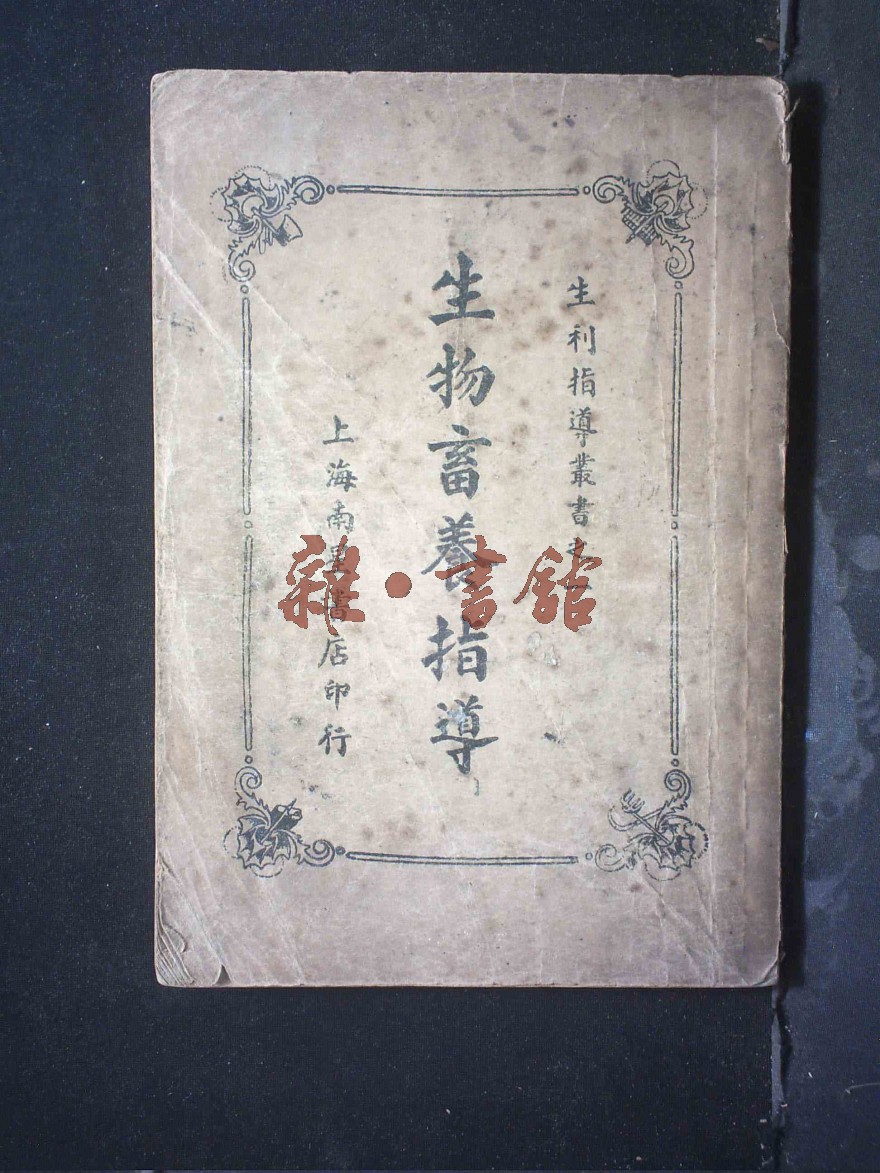 生利指導叢書之
生物畜養指導
上海南星書店印行
雜·書館